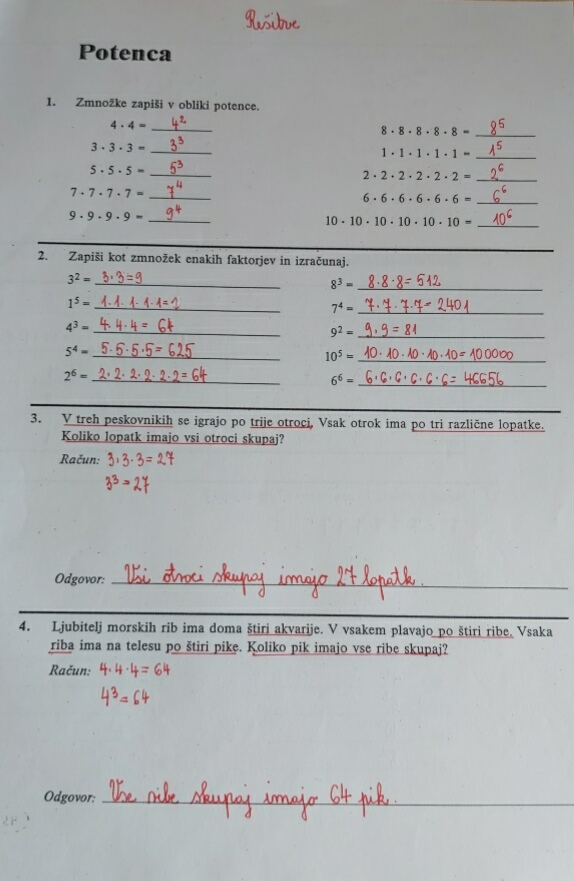 Rešitve
Potenca
1. Zmnožke zapiši v obliki potence.
4 · 4 = 4²
3 · 3 · 3 = 3³
5 · 5 · 5 = 5³
7 · 7 · 7 · 7 = 7⁴
9 · 9 · 9 · 9 = 9⁴
8 · 8 · 8 · 8 · 8 = 8⁵
1 · 1 · 1 · 1 · 1 = 1⁵
2 · 2 · 2 · 2 · 2 · 2 = 2⁶
6 · 6 · 6 · 6 · 6 · 6 = 6⁶
10 · 10 · 10 · 10 · 10 · 10 = 10⁶
2. Zapiši kot zmnožek enakih faktorjev in izračunaj.
3² = 3·3=9
1⁵ = 1·1·1·1·1=1
4³ = 4·4·4 = 64
5⁴ = 5·5·5·5=625
2⁶ = 2·2·2·2·2·2=64
8³ = 8·8·8=512
7⁴ = 7·7·7·7=2401
9² = 9·9=81
10⁵ = 10·10·10·10·10=100000
6⁶ = 6·6·6·6·6·6=46656
3. V treh peskovnikih se igrajo po trije otroci. Vsak otrok ima po tri različne lopatke.
Koliko lopatk imajo vsi otroci skupaj?
Račun: 3·3·3=27
3³=27
Odgovor: Vsi otroci skupaj imajo 27 lopatk.
4. Ljubitelj morskih rib ima doma štiri akvarije. V vsakem plavajo po štiri ribe. Vsaka
riba ima na telesu po štiri pike. Koliko pik imajo vse ribe skupaj?
Račun: 4·4·4=64
4³=64
Odgovor: Vse ribe skupaj imajo 64 pik.